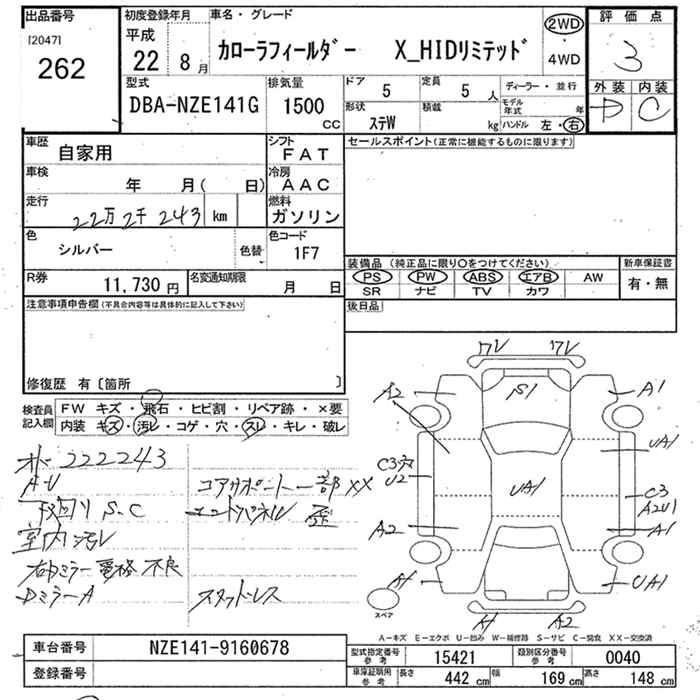 出品番号
[2047]
262
初度登録年月
平成
22年 8月
車名・グレード
カローラフィールダー X_HIDリミテッド
2WD
4WD
評価点
3
外装 内装
D C
型式
DBA-NZE141G
排気量
1500 CC
ドア 5
定員 5 人
形状 ステW
積載 kg
ディーラー・並行
モデル年式 年
ハンドル 左・右
車歴 自家用
シフト FAT
車検 年 月( 日)
冷房 AAC
走行 22万2千243 km
燃料 ガソリン
色 シルバー 色替
色コード 1F7
R券 11,730 円
名変通知期限 月 日
セールスポイント(正常に機能するものに限ります)
装備品 (純正品に限り〇をつけてください)
PS PW ABS エアB AW
SR ナビ TV カワ
新車保証書
有・無
後日品
注意事項申告欄(不具合内容等は具体的に記入して下さい)
修復歴 有〔箇所 〕
検査員記入欄
FW キズ・飛石・ヒビ割・リペア跡・×要
内装 キズ・汚レ・コゲ・穴・スレ・キレ・破レ
オト 222243
A・U
下回り S.C
室内汚レ
右ドアミラー電格不良
Dミラー A
コアサポート一部XX
エンドパネル 歪
スタッドレス
ワレ ワレ
A2 S1 A1
UA1
C3穴
U2
UA1
C3
A2U1
A2 A1
A UA1
A A2
スペア
A-キズ E-エクボ U-凹み W-補修跡 S-サビ C-腐食 XX-交換済
車台番号 NZE141-9160678
登録番号
型式指定番号 参考 15421
類別区分番号 参考 0040
車庫証明用 参考 長さ 442 cm 幅 169 cm 高さ 148 cm